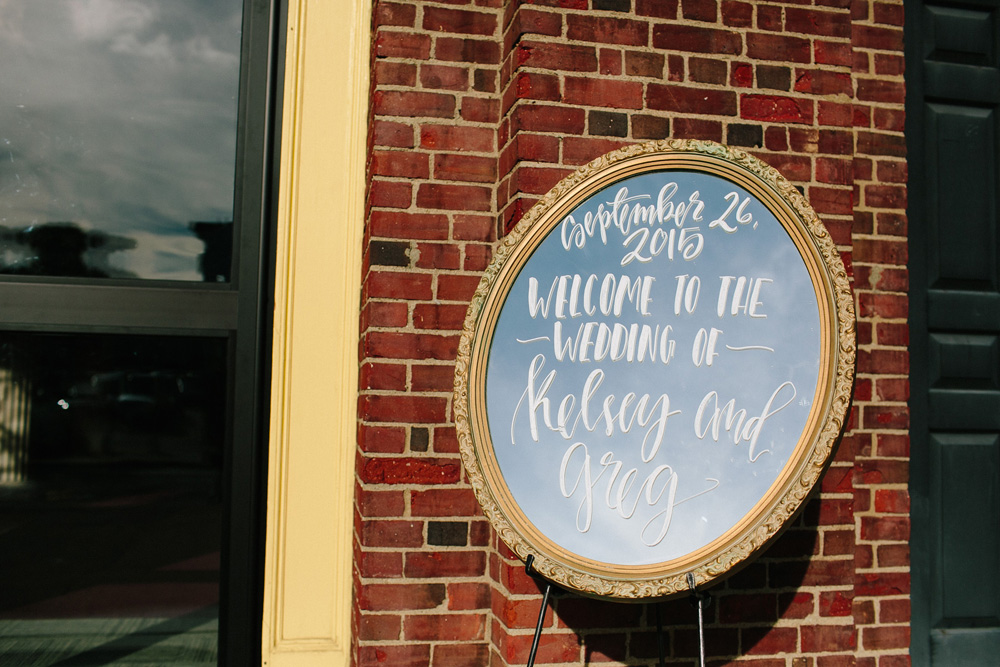 September 26,
2015
WELCOME TO THE
WEDDING OF
Kelsey and
Greg